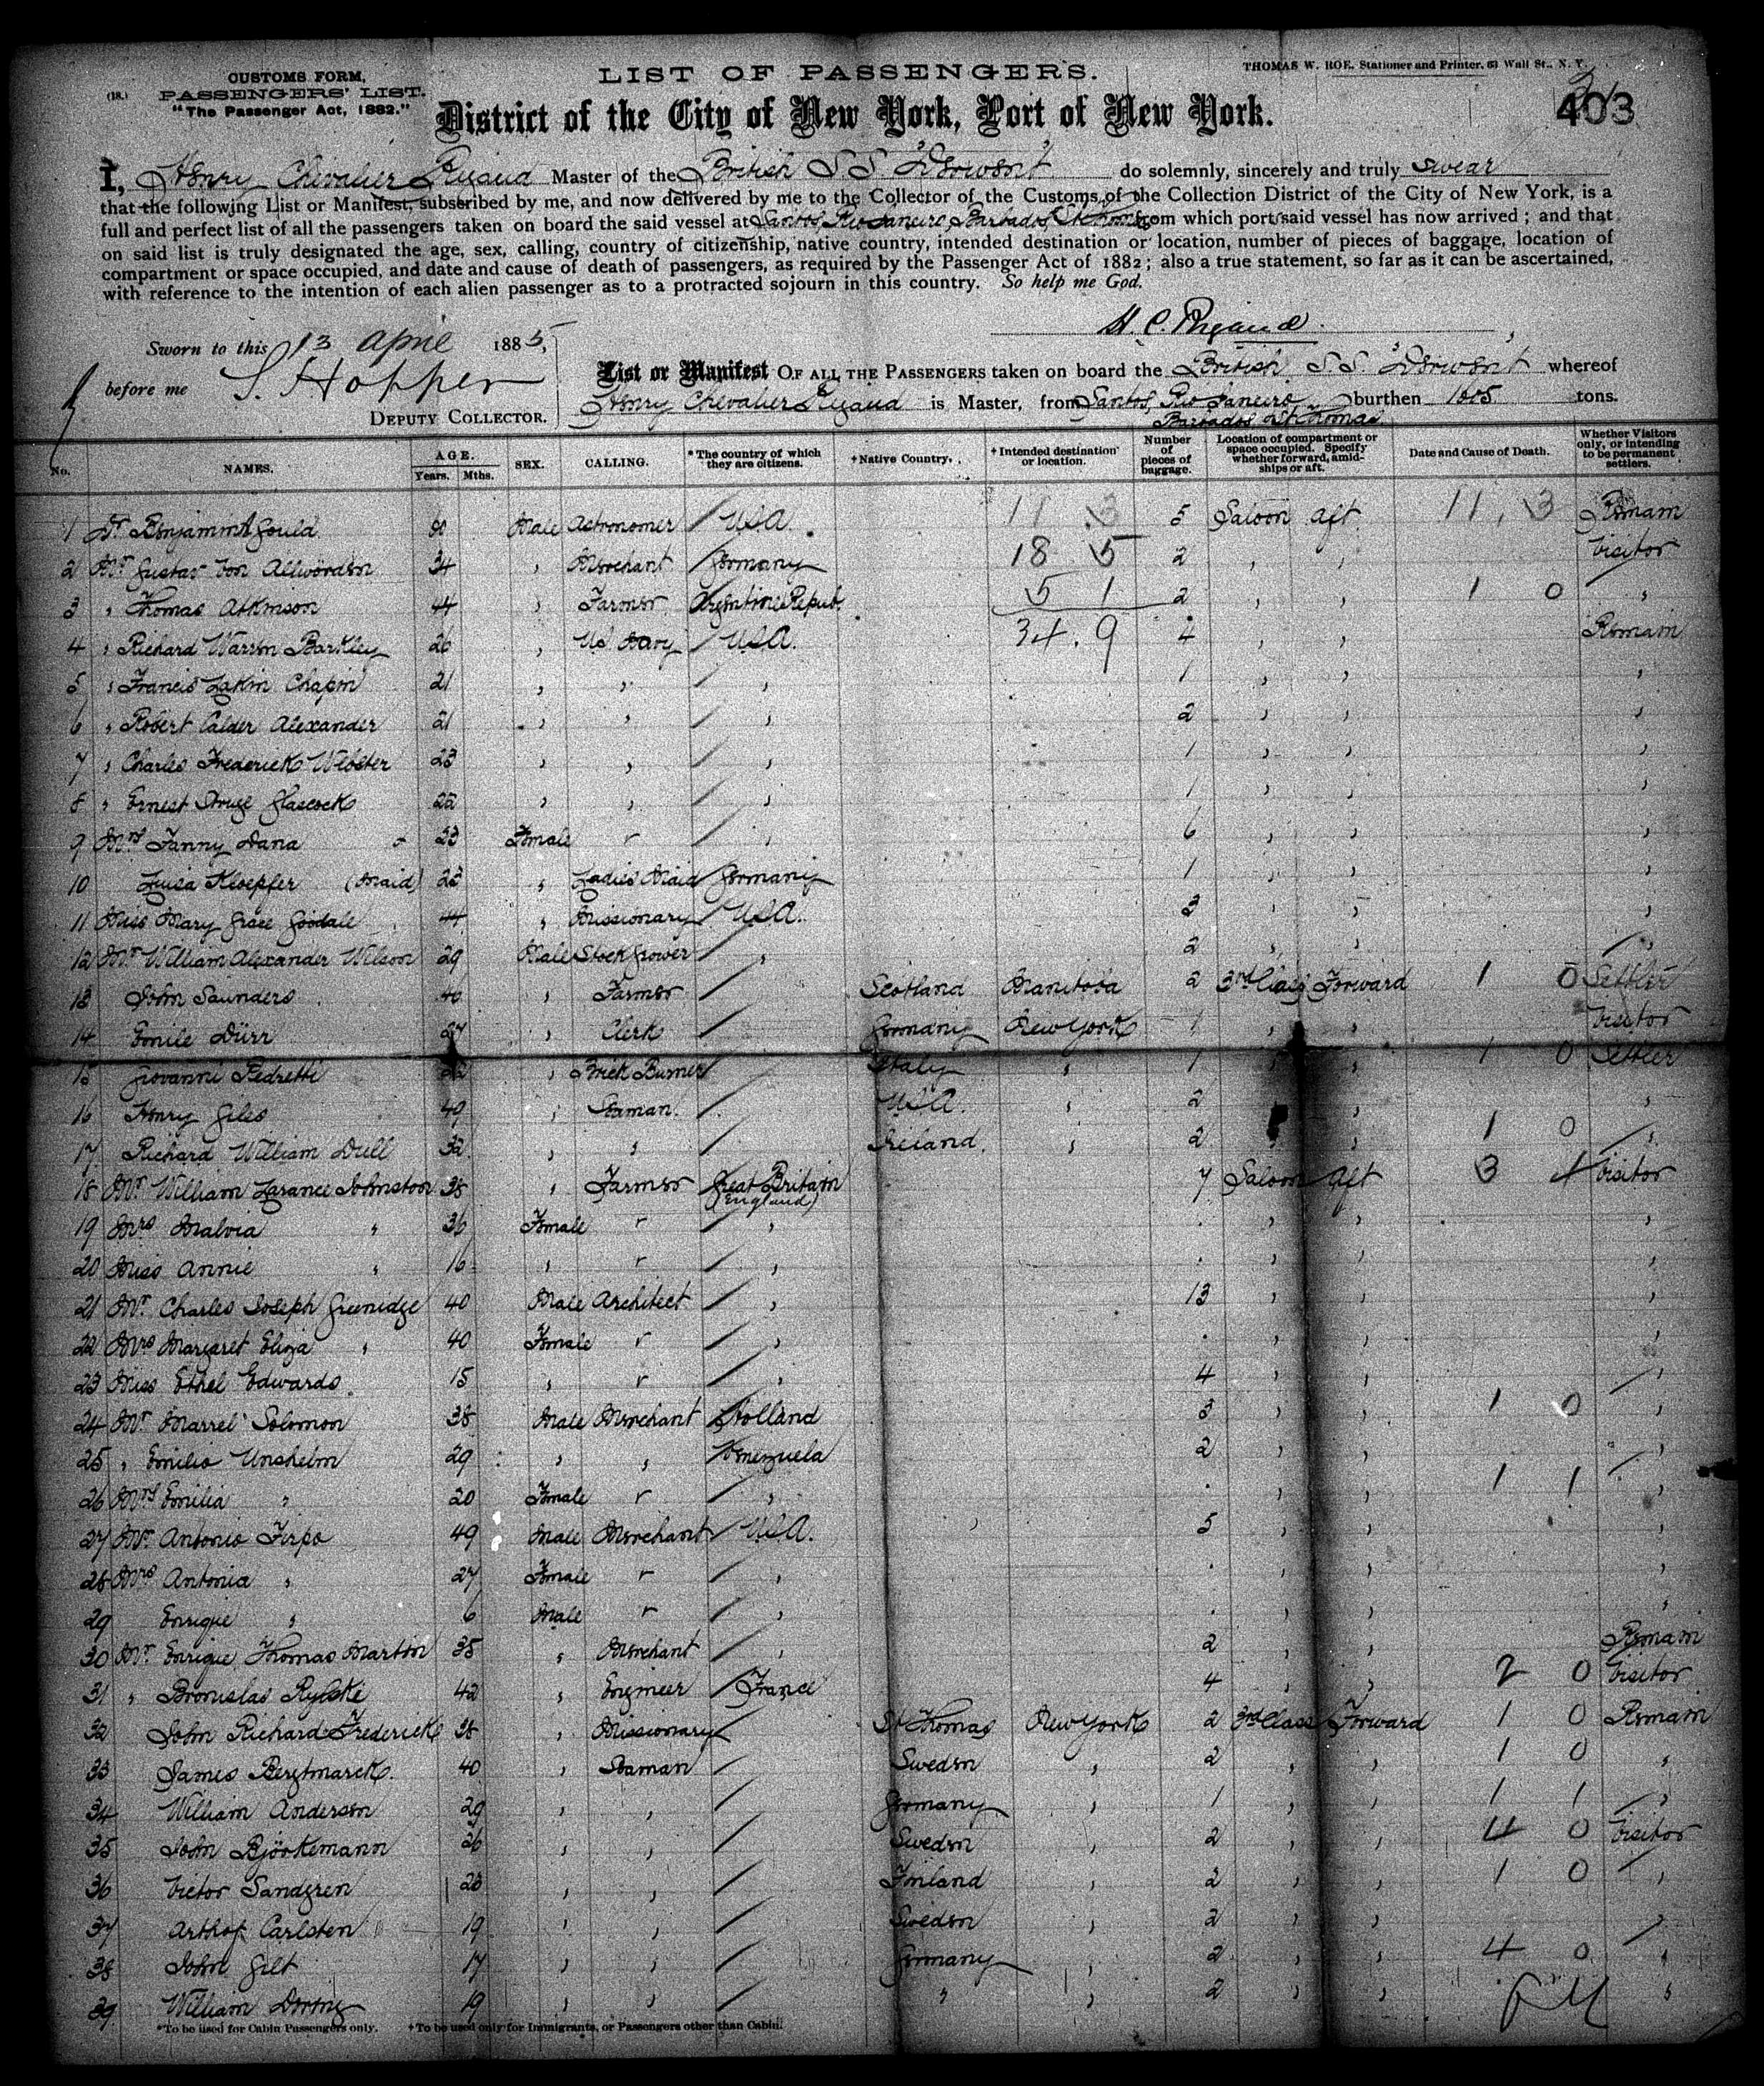 CUSTOMS FORM,
(18.) PASSENGERS' LIST.
"The Passenger Act, 1882."
LIST OF PASSENGERS.
THOMAS W. ROE, Stationer and Printer, 63 Wall St., N. Y.
District of the City of New York, Port of New York.
403
I, Henry Chevalier Rigaud Master of the British S S "Derwent" do solemnly, sincerely and truly swear
that the following List or Manifest, subscribed by me, and now delivered by me to the Collector of the Customs of the Collection District of the City of New York, is a
full and perfect list of all the passengers taken on board the said vessel at Santos, Rio Janeiro, Barbados, St Thomas from which port said vessel has now arrived; and that
on said list is truly designated the age, sex, calling, country of citizenship, native country, intended destination or location, number of pieces of baggage, location of
compartment or space occupied, and date and cause of death of passengers, as required by the Passenger Act of 1882; also a true statement, so far as it can be ascertained,
with reference to the intention of each alien passenger as to a protracted sojourn in this country. So help me God.
H. C. Rigaud
Sworn to this 13 April 1885,
before me S. Hopper
DEPUTY COLLECTOR.
List or Manifest OF ALL THE PASSENGERS taken on board the British S.S. "Derwent" whereof
Henry Chevalier Rigaud is Master, from Santos, Rio Janeiro burthen 1605 tons.
Barbados & St Thomas
No. NAMES. AGE. Years. Mths. SEX. CALLING. *The country of which they are citizens. †Native Country. †Intended destination or location. Number of pieces of baggage. Location of compartment or space occupied. Specify whether forward, amidships or aft. Date and Cause of Death. Whether Visitors only, or intending to be permanent settlers.
1 Dr Benjamin A Gould Male Astronomer / USA. 11 3 5 Saloon Aft. 11, 3 Remain
2 Mr Gustav Von Allwörden 34 " Merchant / Germany 18 5 2 " " Visitor
3 " Thomas Atkinson 44 " Farmer Argentine Repub. 5 1 2 " " 1 0 "
4 " Richard Warren Barkley 26 " US Navy / USA. 34.9 4 " " Remain
5 " Francis Lakin Chapin 21 " " / " 1 " " "
6 " Robert Calder Alexander 21 " " / " 2 " " "
7 " Charles Frederick Webster 23 " " / " 1 " " "
8 " Ernest Glascock 22 " " / " 1 " " "
9 Mrs Fanny Dana 23 Female / " 6 " " "
10 Luisa Kloepfer (Maid) " Ladies Maid Germany 1 " " "
11 Miss Mary Grace Goodale 44 " Missionary / USA. 3 " " "
12 Mr William Alexander Wilson 29 Male Stock Grower / " 2 " " "
13 John Saunders 40 " Farmer / Scotland Manitoba 2 3rd Class Forward 1 0 Settler
14 Emile Dürr 27 " Clerk / Germany New York 1 " " Visitor
15 Giovanni Pedretti " Brick Burner / Italy " 1 " 1 0 Settler
16 Henry Giles 49 " Seaman. / USA. " 2 " "
17 Richard William Dull 32 " " / Ireland. " 2 " " 1 0 "
18 Mr William Johnston 38 " Farmer Great Britain (England) 7 Saloon Aft 3 1 Visitor
19 Mrs Malvia " 36 Female " " " "
20 Miss Annie " 16 " / " " " "
21 Mr Charles Joseph Greenidge 40 Male Architect / " 13 " " "
22 Mrs Margaret Eliza " 40 Female / " " " "
23 Miss Ethel Edwards 15 " / " 4 " " "
24 Mr Marrel Solomon 38 Male Merchant / Holland 3 " " 1 0 "
25 " Emilio Unshelm 29 " " Venezuela 2 " " "
26 Mrs Emilia " 20 Female / " " " 1 1 "
27 Mr Antonio Firpo 49 Male Merchant / USA. 5 " " "
28 Mrs Antonia " 27 Female / " " " "
29 Enrique " 6 Male / " " " "
30 Mr Enrique Thomas Martin 35 " Merchant / " 2 " " Remain
31 " Bronislas Rylski 42 " Engineer / France 4 " " 2 0 Visitor
32 John Richard Frederick 38 " Missionary / St Thomas New York 2 3rd Class Forward 1 0 Remain
33 James Bergtmarck. 40 " Seaman / Sweden " 2 " " 1 0 "
34 William Anderson 29 " " / Germany " 1 " " 1 1 "
35 John Björkemann 26 " " / Sweden " 2 " " 4 0 Visitor
36 Victor Sandgren 23 " " / Finland " 2 " " 1 0 "
37 Arthof Carlsten 19 " " / Sweden " 2 " " "
38 John Gilt 17 " " / Germany " 2 " " 4 0 "
39 William Döring 19 " " / " " 2 " " "
*To be used for Cabin Passengers only. †To be used only for Immigrants, or Passengers other than Cabin.